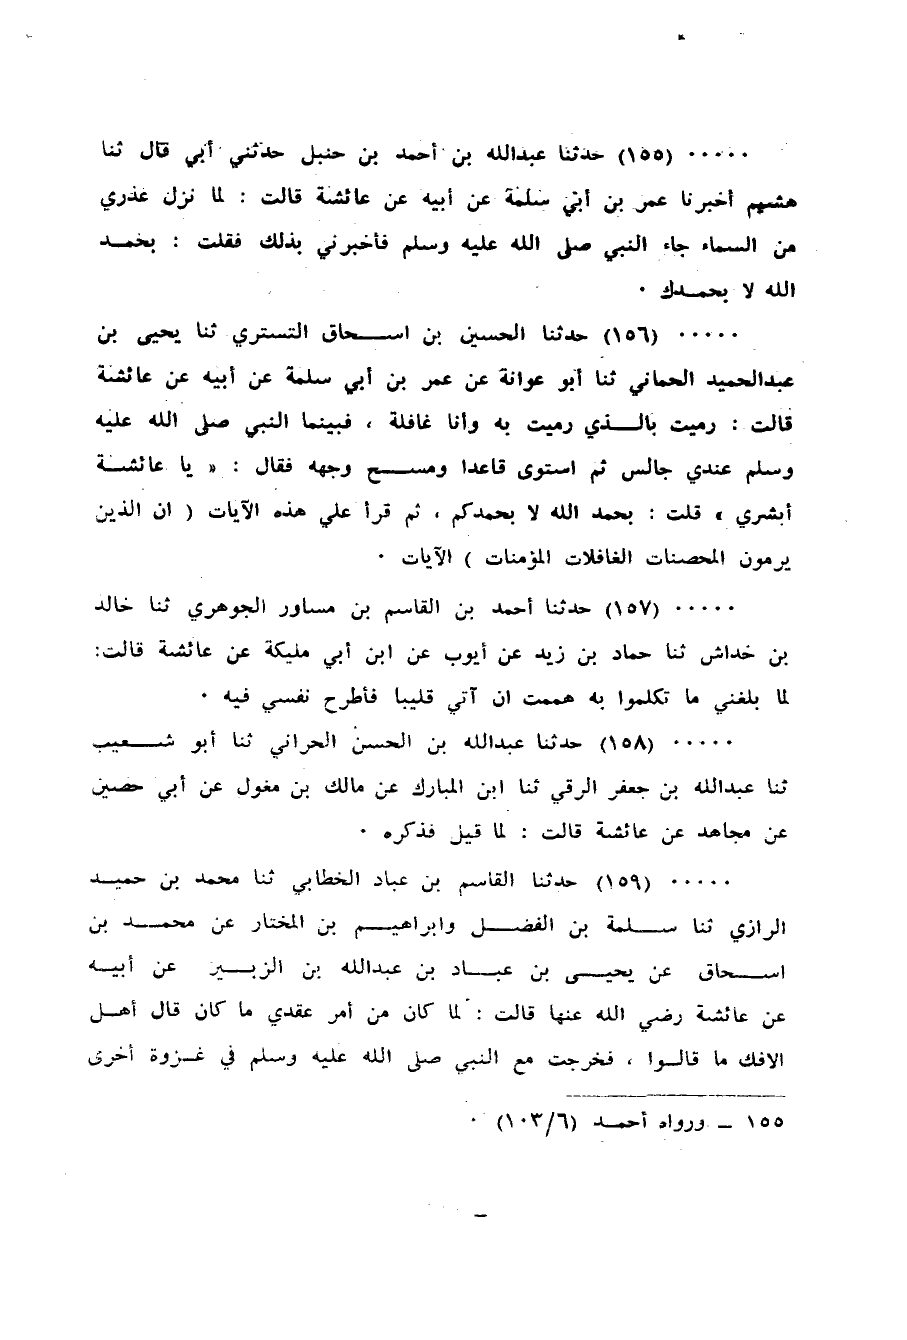 ٠٠٠٠٠ (١٥٥) حدثنا عبدالله بن أحمد بن حنبل حدثني أبي قال ثنا
هشيم أخبرنا عمر بن أبي سلمة عن أبيه عن عائشة قالت : لما نزل عذري
من السماء جاء النبي صلى الله عليه وسلم فأخبرني بذلك فقلت : بحمد
الله لا بحمدك ٠
٠٠٠٠٠ (١٥٦) حدثنا الحسين بن اسحاق التستري ثنا يحيى بن
عبدالحميد الحماني ثنا أبو عوانة عن عمر بن أبي سلمة عن أبيه عن عائشة
قالت : رميت بالذي رميت به وأنا غافلة ، فبينما النبي صلى الله عليه
وسلم عندي جالس ثم استوى قاعدا ومسح وجهه فقال : « يا عائشة
أبشري » قلت : بحمد الله لا بحمدكم ، ثم قرأ علي هذه الآيات ( ان الذين
يرمون المحصنات الغافلات المؤمنات ) الآيات ٠
٠٠٠٠٠ (١٥٧) حدثنا أحمد بن القاسم بن مساور الجوهري ثنا خالد
بن خداش ثنا حماد بن زيد عن أيوب عن ابن أبي مليكة عن عائشة قالت:
لما بلغني ما تكلموا به هممت ان آتي قليبا فأطرح نفسي فيه ٠
٠٠٠٠٠ (١٥٨) حدثنا عبدالله بن الحسن الحراني ثنا أبو شعيب
ثنا عبدالله بن جعفر الرقي ثنا ابن المبارك عن مالك بن مغول عن أبي حصين
عن مجاهد عن عائشة قالت : لما قيل فذكره ٠
٠٠٠٠٠ (١٥٩) حدثنا القاسم بن عباد الخطابي ثنا محمد بن حميد
الرازي ثنا سلمة بن الفضل وابراهيم بن المختار عن محمد بن
اسحاق عن يحيى بن عباد بن عبدالله بن الزبير عن أبيه
عن عائشة رضي الله عنها قالت : لما كان من أمر عقدي ما كان قال أهل
الافك ما قالوا ، فخرجت مع النبي صلى الله عليه وسلم في غزوة أخرى
١٥٥ ــ ورواه أحمد (١٠٣/٦) ٠